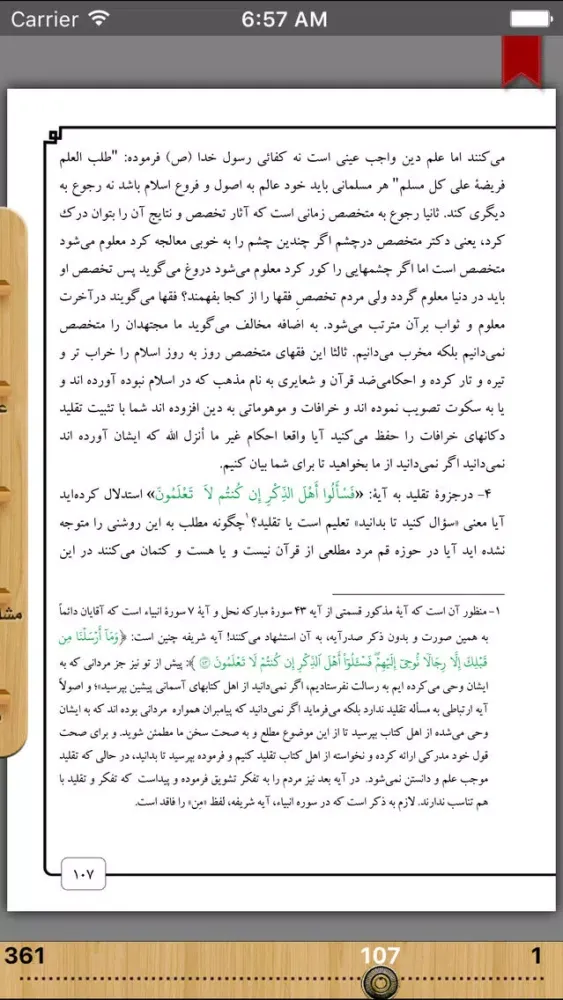 Carrier 6:57 AM
می‌کنند اما علم دین واجب عینی است نه کفائی رسول خدا (ص) فرموده: "طلب العلم
فریضة علی کل مسلم" هر مسلمانی باید خود عالم به اصول و فروع اسلام باشد نه رجوع به
دیگری کند. ثانیا رجوع به متخصص زمانی است که آثار تخصص و نتایج آن را بتوان درك
کرد، یعنی دکتر متخصص درچشم اگر چندین چشم را به خوبی معالجه کرد معلوم می‌شود
متخصص است اما اگر چشمهایی را کور کرد معلوم می‌شود دروغ می‌گوید پس تخصص او
باید در دنیا معلوم گردد ولی مردم تخصصِ فقها را از کجا بفهمند؟ فقها می‌گویند درآخرت
معلوم و ثواب برآن مترتب می‌شود. به اضافه مخالف می‌گوید ما مجتهدان را متخصص
نمی‌دانیم بلکه مخرب می‌دانیم. ثالثا این فقهای متخصص روز به روز اسلام را خراب تر و
تیره و تار کرده و احکامی‌ضد قرآن و شعایری به نام مذهب که در اسلام نبوده آورده اند و
یا به سکوت تصویب نموده اند و خرافات و موهوماتی به دین افزوده اند شما با تثبیت تقلید
دکانهای خرافات را حفظ می‌کنید آیا واقعا احکام غیر ما أنزل الله که ایشان آورده اند
نمی‌دانید اگر نمی‌دانید از ما بخواهید تا برای شما بیان کنیم.
۴- درجزوۀ تقلید به آیۀ: «فَسْأَلُوا أَهْلَ الذِّكْرِ إِن كُنتُم لاَ تَعْلَمُونَ» استدلال کرده‌اید
آیا معنی «سؤال کنید تا بدانید» تعلیم است یا تقلید؟۱چگونه مطلب به این روشنی را متوجه
نشده اید آیا در حوزه قم مرد مطلعی از قرآن نیست و یا هست و کتمان می‌کنند در این
۱- منظور آن است که آیۀ مذکور قسمتی از آیه ۴۳ سورۀ مبارکه نحل و آیۀ ۷ سورۀ انبیاء است که آقایان دائماً
به همین صورت و بدون ذکر صدرآیه، به آن استشهاد می‌کنند! آیه شریفه چنین است: ﴿وَمَآ أَرْسَلْنَا مِن
قَبْلِكَ إِلَّا رِجَالًا نُّوحِىٓ إِلَيْهِمْ ۚ فَسْـَٔلُوٓا۟ أَهْلَ ٱلذِّكْرِ إِن كُنتُمْ لَا تَعْلَمُونَ ۝﴾: پیش از تو نیز جز مردانی که به
ایشان وحی می‌کرده ایم به رسالت نفرستادیم، اگر نمی‌دانید از اهل کتابهای آسمانی پیشین بپرسید»؛ و اصولاً
آیه ارتباطی به مسأله تقلید ندارد بلکه می‌فرماید اگر نمی‌دانید که پیامبران همواره مردانی بوده اند که به ایشان
وحی می‌شده از اهل کتاب بپرسید تا از این موضوع مطلع و به صحت سخن ما مطمئن شوید. و برای صحت
قول خود مدرکی ارائه کرده و نخواسته از اهل کتاب تقلید کنیم و فرموده بپرسید تا بدانید، در حالی که تقلید
موجب علم و دانستن نمی‌شود. در آیه بعد نیز مردم را به تفکر تشویق فرموده و پیداست که تفکر و تقلید با
هم تناسب ندارند. لازم به ذکر است که در سوره انبیاء، آیه شریفه، لفظ «مِن» را فاقد است.
۱۰۷
361 107 1